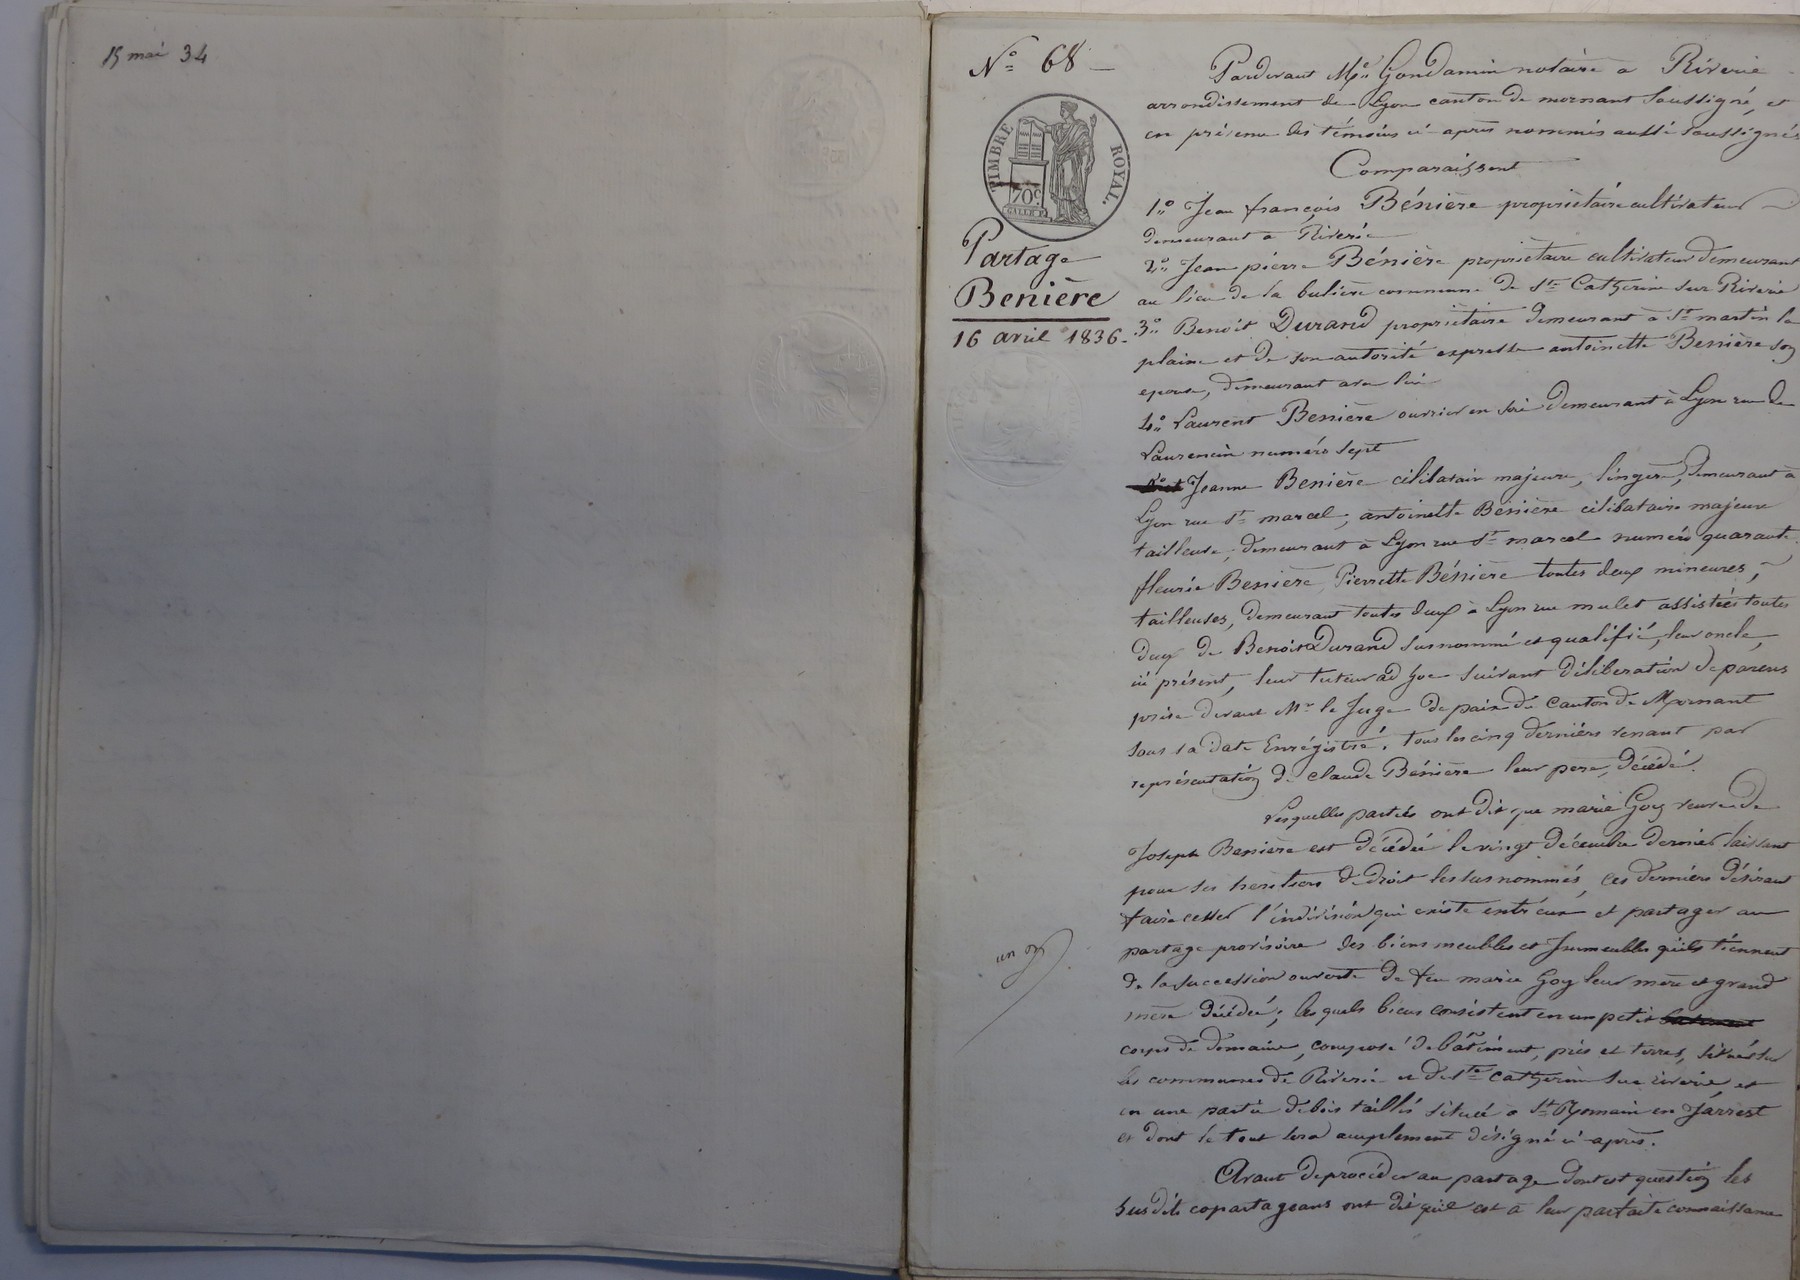 15 mai 34
Nº 68 –
TIMBRE ROYAL.
70c
Partage
Benière
16 avril 1836-
un
Pardevant Me Gondamin notaire a Riverie
arrondissement de Lyon canton de mornant soussigné, et
en présence des témoins ci-après nommés aussi soussignés
Comparaissent
1º Jean françois Bénière propriétaire cultivateur
demeurant a Riverie
2º Jean pierre Bénière propriétaire cultivateur demeurant
au lieu de la bulière commune de Ste Catherine sur Riverie
3º Benoit Durand propriétaire demeurant à St martin la
plaine et de son autorité expresse antoinette Benière son
epouse, demeurant avec lui
4º Laurent Benière ouvrier en soie demeurant à Lyon rue de
Laurencin numéro sept
Jeanne Benière cilibatair majeure, lingère, demeurant à
Lyon rue St marcel, antoinette Bénière cilibataire majeure
tailleuse, demeurant à Lyon rue St marcel numéro quarante,
fleurie Benière, Pierrette Bénière toutes deux mineures,
tailleuses, demeurant toutes deux à Lyon rue mulet assistées toutes
deux de Benoit Durand susnommé et qualifié, leur oncle,
ici présent, leur tuteur ad hoc suivant délibération de parens
prise devant Mr le Juge de paix du Canton de Mornant
sous sa date Enrégistré. tous les cinq derniers venant par
représentation de claude Bénière leur père, décédé.
Lesquelles parties ont dit que marie Goy veuve de
Joseph Benière est décédée le vingt décembre dernier laissant
pour ses heritiers de droit les susnommés, ces derniers désirant
faire cesser l'indivision qui existe entr'eux et partager au
partage provisoire des biens meubles et Immeubles qu'ils tiennent
de la succession ouverte de feu marie Goy leur mère et grand
mère décédée; lesquels biens consistent en un petit
corps de domaine, composé de bâtiment, prés et terres, situés sur
les communes de Riverie et de Ste Catherine sur riverie et
en une partie de bois taillis située a St Romain en Jarrest
et dont le tout sera amplement désigné ci-après.
Avant de procéder au partage dont est question les
susdits copartageans ont dit qu'il est à leur parfaite connaissance